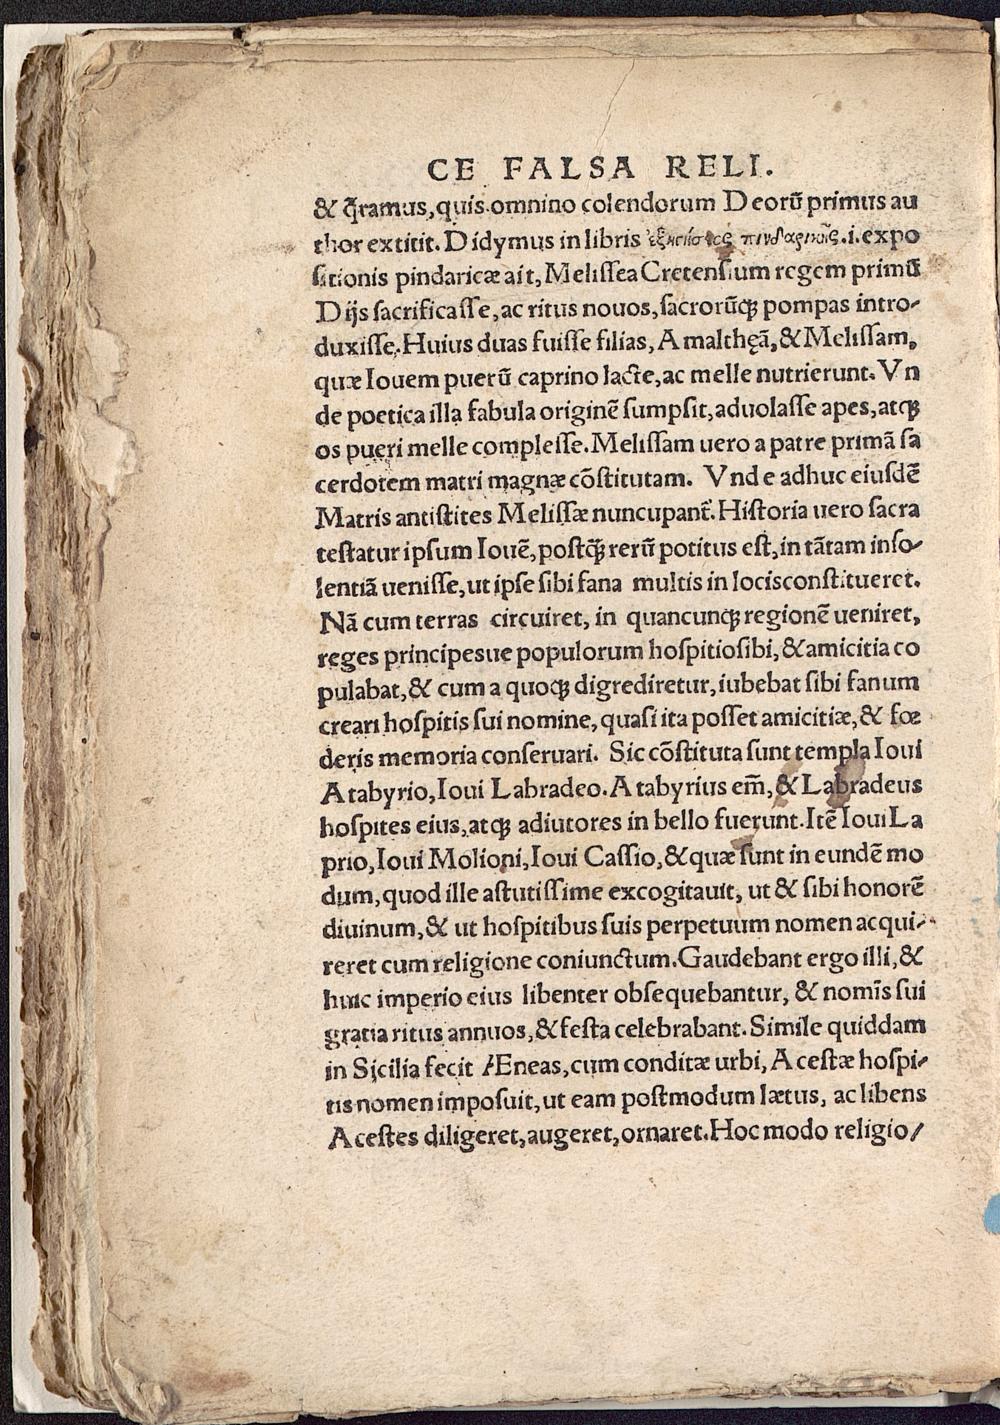 CE FALSA RELI.
& q̃ramus, quis omnino colendorum Deorũ primus au
thor extitit. Didymus in libris πινδαρικῆς .i. expo
sitionis pindaricæ ait, Melissea Cretensium regem primũ
Dijs sacrificasse, ac ritus nouos, sacrorũq; pompas intro-
duxisse. Huius duas fuisse filias, Amalthęã, & Melissam,
quæ Iouem puerũ caprino lacte, ac melle nutrierunt. Vn
de poetica illa fabula originẽ sumpsit, aduolasse apes, atq;
os pueri melle complesse. Melissam uero a patre primã sa
cerdotem matri magnæ cõstitutam. Vnde adhuc eiusdẽ
Matris antistites Melissæ nuncupant̃. Historia uero sacra
testatur ipsum Iouẽ, postq̃ rerũ potitus est, in tãtam inso-
lentiã uenisse, ut ipse sibi fana multis in locis constitueret.
Nã cum terras circuiret, in quancunq; regionẽ ueniret,
reges principesue populorum hospitio sibi, & amicitia co
pulabat, & cum a quoq; digrediretur, iubebat sibi fanum
creari hospitis sui nomine, quasi ita posset amicitiæ, & fœ
deris memoria conseruari. Sic cõstituta sunt templa Ioui
Atabyrio, Ioui Labradeo. Atabyrius em̃, & Labradeus
hospites eius, atq; adiutores in bello fuerunt. Itẽ Ioui La
prio, Ioui Molioni, Ioui Cassio, & quæ sunt in eundẽ mo
dum, quod ille astutissime excogitauit, ut & sibi honorẽ
diuinum, & ut hospitibus suis perpetuum nomen acqui-
reret cum religione coniunctum. Gaudebant ergo illi, &
huic imperio eius libenter obsequebantur, & nomĩs sui
gratia ritus annuos, & festa celebrabant. Simile quiddam
in Sicilia fecit Æneas, cum conditæ urbi, Acestæ hospi-
tis nomen imposuit, ut eam postmodum lætus, ac libens
Acestes diligeret, augeret, ornaret. Hoc modo religio/